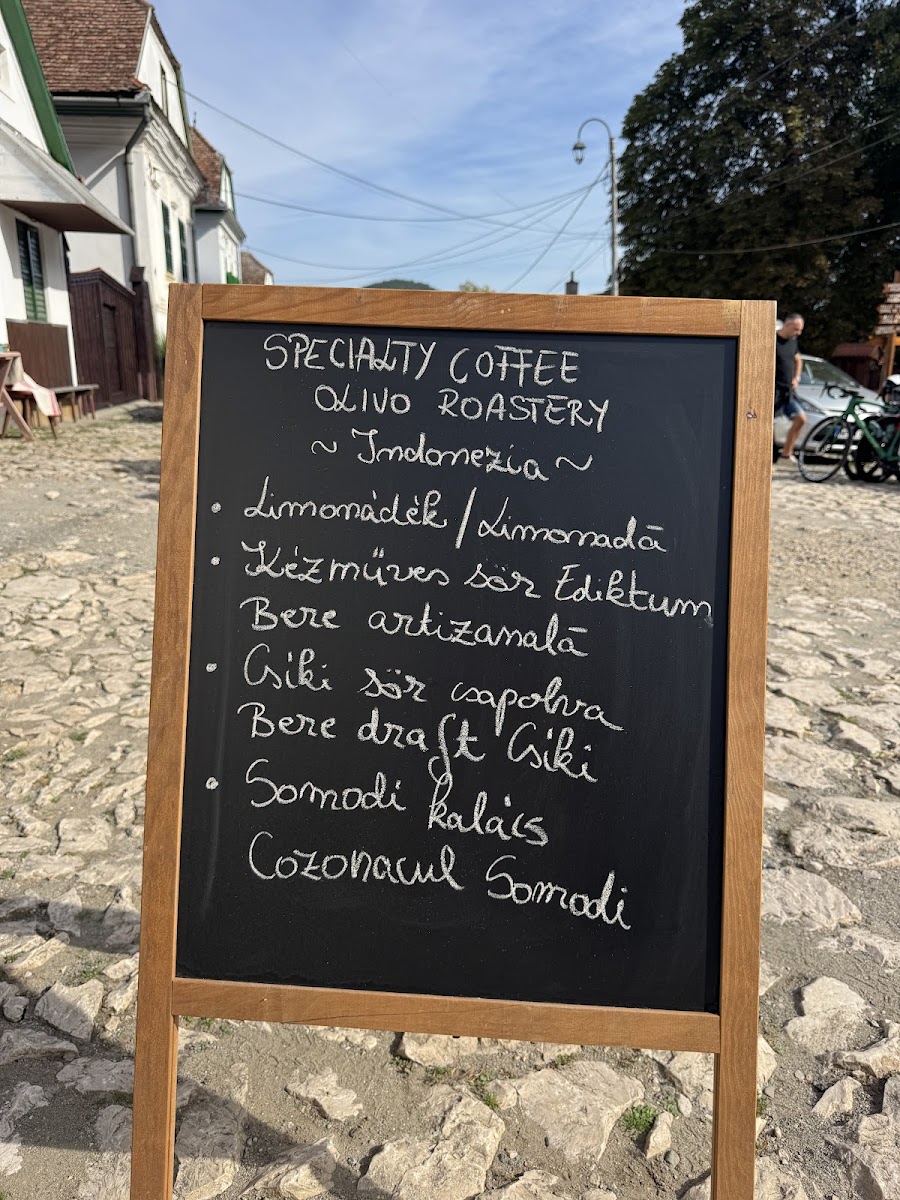 SPECIALTY COFFEE
OLIVO ROASTERY
~ Indonezia ~
• Limonádék / Limonadă
• Kézműves sör Ediktum
Bere artizanală
• Csiki sör csapolva
Bere draft Csiki
• Somodi kalács
Cozonacul Somodi